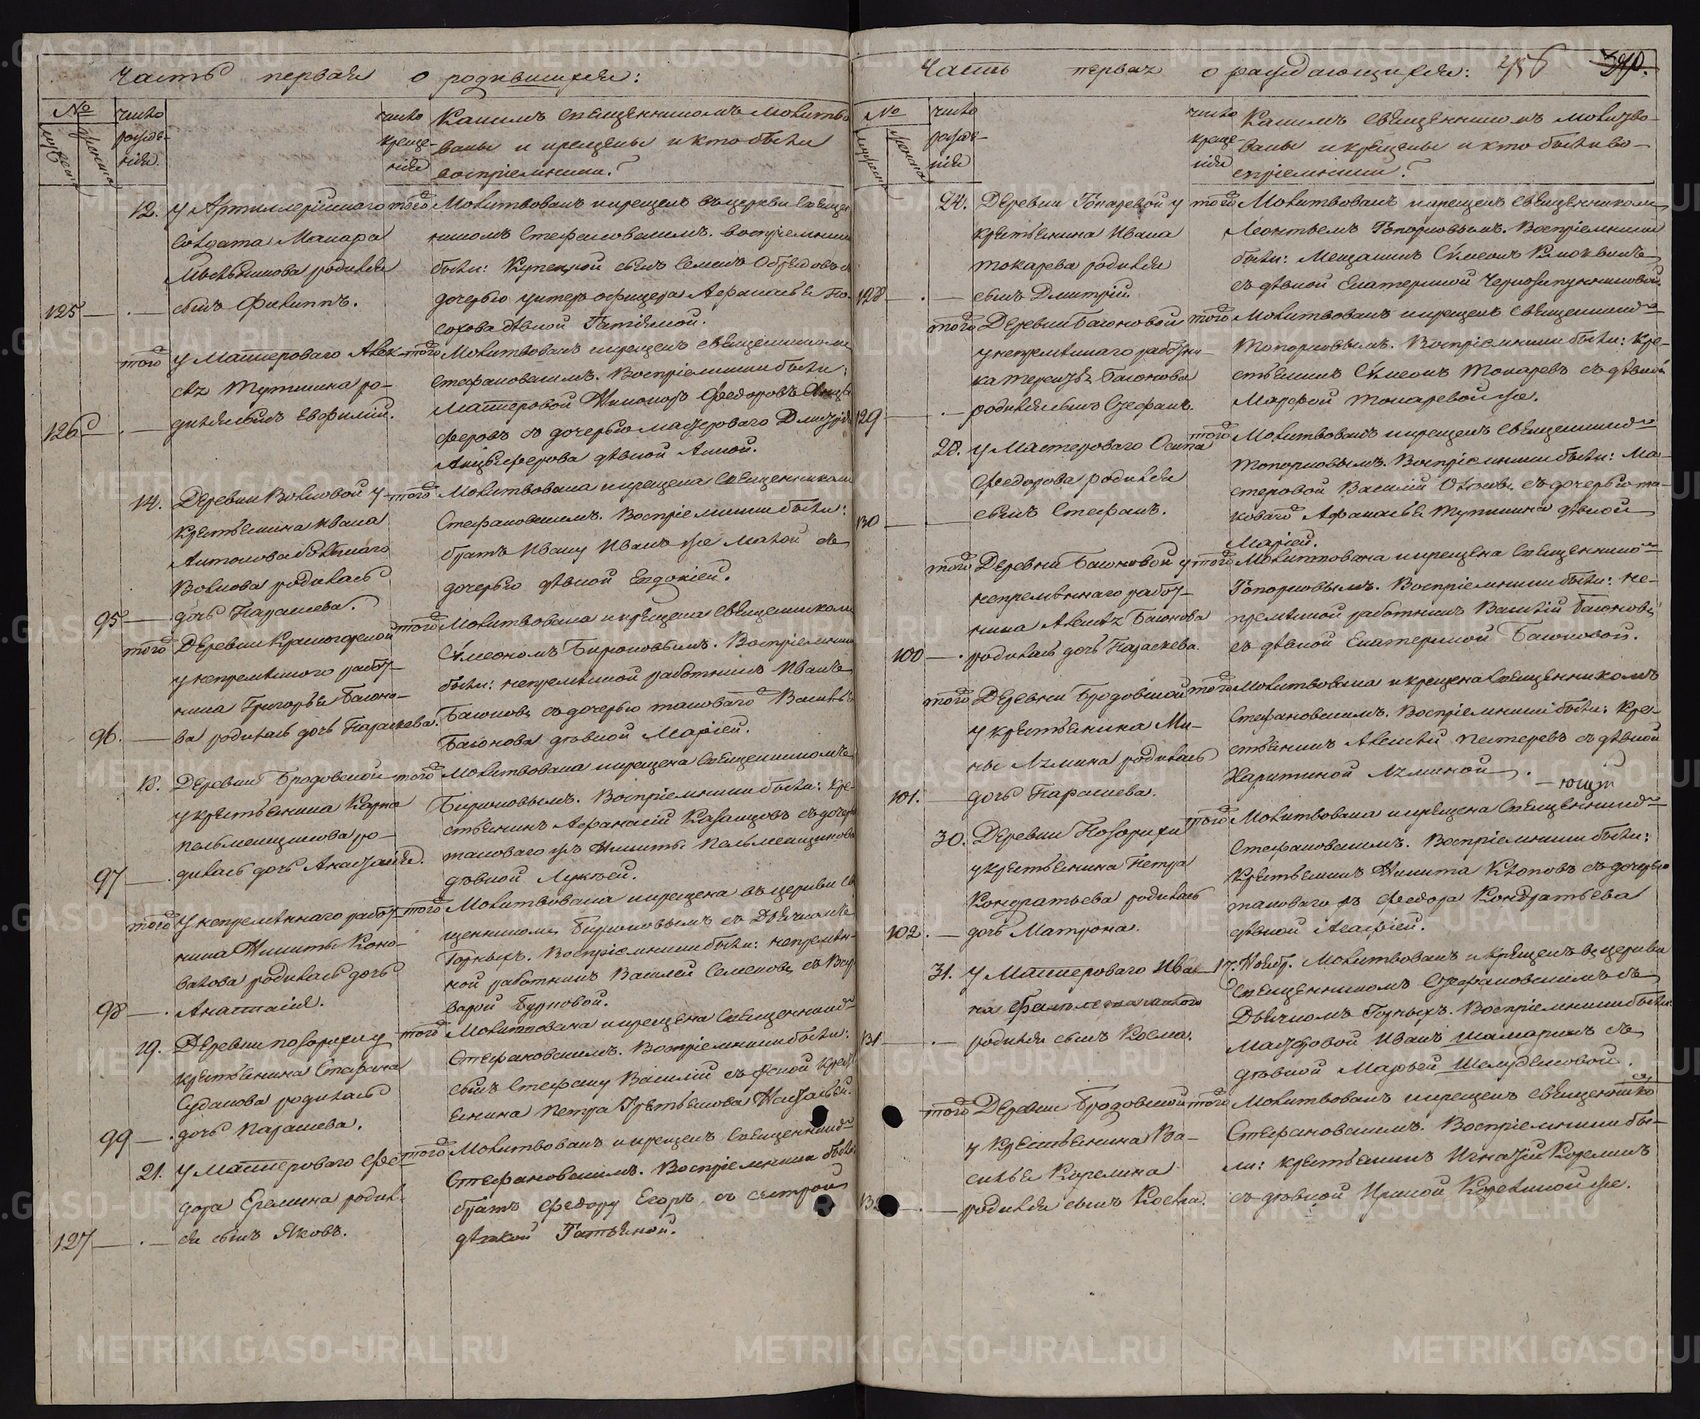 Часть первая о родившихся:
№
число рожде-
нія
число креще-
нія
Какимъ священникомъ молитво-
ваны и крещены и кто были
воспріемники?
12. У Артиллерійскаго
солдата Макара
родился
125 сынъ Филиппъ.
того Молитвованъ и крещенъ въ церкви священ-
никомъ Стефановскимъ. Воспріемники
были: Купецкой сынъ Семенъ съ
дочерью унтеръ-офицера Афанасья
дѣвкой Татіяной.
того У Мастероваго Алек-
сѣя Тупицина ро-
126 дился сынъ Евфимій.
того Молитвованъ и крещенъ священникомъ
Стефановскимъ. Воспріемники были:
Мастеровой Никаноръ Федоровъ
съ дочерью мастероваго Дмитрія
Анцыферова дѣвкой Анной.
14. Деревни Волковой у
крестьянина Ивана
Антонова
Волкова родилась
95 дочь Параскева.
того Молитвована и крещена священникомъ
Стефановскимъ. Воспріемники были:
братъ Ивану Иванъ же малой съ
дочерью дѣвкой Евдокіей.
того Деревни Красногорской
у непремѣннаго работ-
ника Григорья Баюно-
96. ва родилась дочь Параскева.
того Молитвована и крещена священникомъ
Сѵмеономъ Бирюковымъ. Воспріемники
были: непремѣнной работникъ Иванъ
Баюновъ съ дочерью таковаго Василья
Баюнова дѣвкой Маріей.
18. Деревни Бродовской
у крестьянина Карпа
Пельменщикова ро-
97 дилась дочь Анастасія.
того Молитвована и крещена священникомъ
Бирюковымъ. Воспріемники были: кре-
стьянинъ Афанасій Казанцовъ съ дочерью
таковаго же Никиты Пельменщикова
дѣвкой Лукіей.
того У непремѣннаго работ-
ника Никиты Коно-
валова родилась дочь
98 Анастасія.
того Молитвована и крещена въ церкви свя-
щенникомъ Бирюковымъ съ Дьячкомъ
Горныхъ. Воспріемники были: непремѣн-
ной работникъ Василей Семеновъ съ Вар-
варой Бурковой.
19. Деревни Позарихи у
крестьянина Стефана
Судакова родилась
99 дочь Параскева.
того Молитвована и крещена священникомъ
Стефановскимъ. Воспріемники были:
сынъ Стефану Василій съ женой крест-
ьянина Петра Третьякова Натальей.
21. У Мастероваго Фе-
дора Еремина родил-
127 ся сынъ Яковъ.
того Молитвованъ и крещенъ священникомъ
Стефановскимъ. Воспріемники были:
братъ Федору Егоръ съ сестрой
дѣвкой Татьяной.
Часть первая о раждающихся: 390.
№
число рожде-
нія
число креще-
нія
Какимъ священникомъ молитво-
ваны и крещены и кто были во-
спріемники?
24. Деревни Токаревой у
крестьянина Ивана
Токарева родился
128 сынъ Дмитрій.
того Молитвованъ и крещенъ священникомъ
Леонтьемъ Топорковымъ. Воспріемники
были: Мещанинъ Сѵмеонъ
съ дѣвкой Екатериной
того Деревни Баюновой
у непремѣннаго работни-
ка Терентья Баюнова
129 родился сынъ Стефанъ.
того Молитвованъ и крещенъ священникомъ
Топорковымъ. Воспріемники были: кре-
стьянинъ Сѵмеонъ Токаревъ съ дѣвкой
Марфой Токаревой же.
28. У Мастероваго Осипа
Федорова родился
130 сынъ Стефанъ.
того Молитвованъ и крещенъ священникомъ
Топорковымъ. Воспріемники были: Ма-
стеровой Василій съ дочерью та-
коваго Афанасья Тупицина дѣвкой
Маріей.
того Деревни Баюновой у
непремѣннаго работ-
ника Алексѣя Баюнова
100 родилась дочь Параскева.
того Молитвована и крещена священникомъ
Топорковымъ. Воспріемники были: не-
премѣнной работникъ Василій Баюновъ
съ дѣвкой Екатериной Баюновой.
того Деревни Бродовской
у крестьянина Ми-
ны Лямина родилась
101. дочь Параскева.
того Молитвована и крещена священникомъ
Стефановскимъ. Воспріемники были: кре-
стьянинъ Алексѣй Пестеревъ съ дѣвкой
Харитиной Ляминой.
30. Деревни Позарихи
у крестьянина Петра
Кондратьева родилась
102. дочь Матрона.
того Молитвована и крещена священникомъ
Стефановскимъ. Воспріемники были:
крестьянинъ Никита Клоповъ съ дочерью
таковаго же Федора Кондратьева
дѣвкой Агафіей.
31. У Мастероваго Ива-
на
131 родился сынъ Косма.
17. Нояб. Молитвованъ и крещенъ въ церкви
священникомъ Стефановскимъ съ
Дьячкомъ Горныхъ. Воспріемники были:
Мастеровой Иванъ Шамаринъ съ
дѣвкой Марьей Шелудяковой.
того Деревни Бродовской
у крестьянина Ва-
силья Корелина
132 родился сынъ Косма.
того Молитвованъ и крещенъ священникомъ
Стефановскимъ. Воспріемники бы-
ли: крестьянинъ Игнатій Корелинъ
съ дѣвкой Ириной Корелиной же.
METRIKI.GASO-URAL.RU